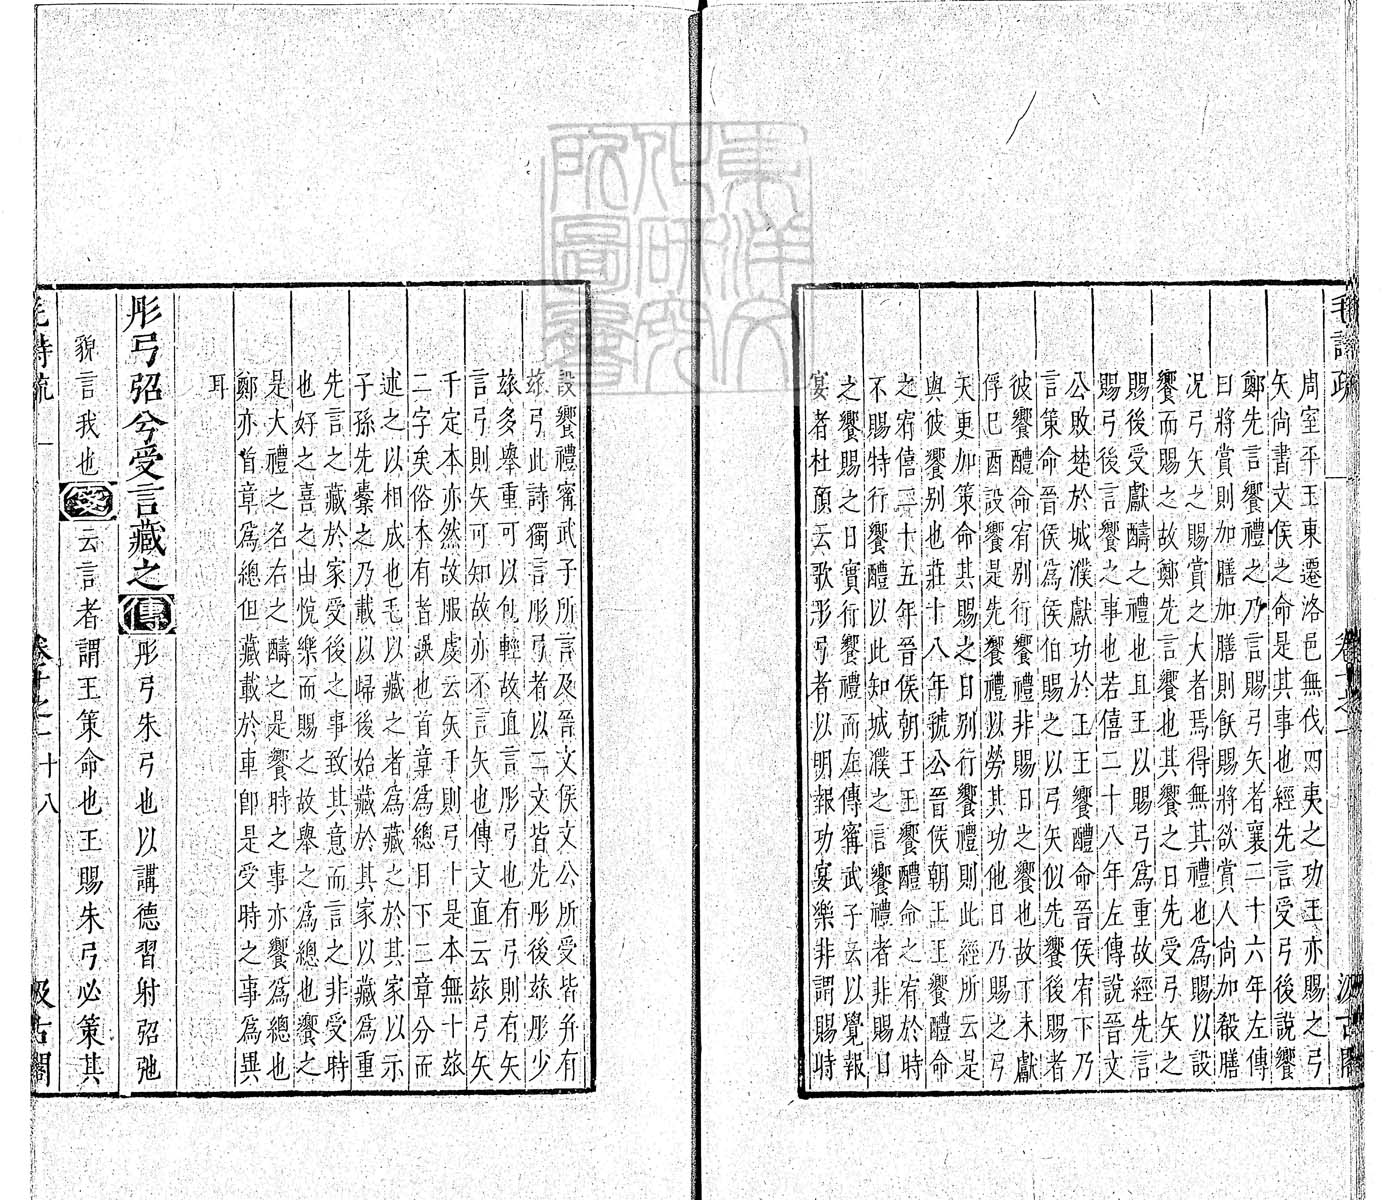 毛詩疏 卷十之一 汲古閣
周室平王東遷洛邑無伐四夷之功王亦賜之弓
矢尚書文侯之命是其事也經先言受弓後說饗
鄭先言饗禮之乃言賜弓矢者襄二十六年左傳
曰將賞則加膳加膳則飫賜將欲賞人尚加殽膳
况弓矢之賜賞之大者焉得無其禮也爲賜以設
饗而賜之故鄭先言饗也其饗之日先受弓矢之
賜後受獻醻之禮也且王以賜弓爲重故經先言
賜弓後言饗之事也若僖二十八年左傳說晉文
公敗楚於城濮獻功於王王饗醴命晉侯宥下乃
言策命晉侯爲侯伯賜之以弓矢似先饗後賜者
彼饗醴命宥別行饗禮非賜日之饗也故丁未獻
俘已酉設饗是先饗禮以勞其功他日乃賜之弓
矢更加策命其賜之日別行饗禮則此經所云是
與彼饗別也莊十八年虢公晉侯朝王王饗醴命
之宥僖二十五年晉侯朝王王饗醴命之宥於時
不賜特行饗醴以此知城濮之言饗禮者非賜日
之饗賜之日實行饗禮而左傳甯武子云以覺報
宴者杜預云歌彤弓者以明報功宴樂非謂賜時
設饗禮甯武子所言及晉文侯文公所受皆并有
玈弓此詩獨言彤弓者以二文皆先彤後玈彤少
玈多舉重可以包輕故直言彤弓也有弓則有矢
言弓則矢可知故亦不言矢也傳文直云玈弓矢
千定本亦然故服虔云矢千則弓十是本無十玈
二字矣俗本有者誤也首章爲總目下二章分而
述之以相成也毛以藏之者爲藏之於其家以示
子孫先櫜之乃載以歸後始藏於其家以藏爲重
先言之藏於家受後之事致其意而言之非受時
也好之喜之由悅樂而賜之故舉之爲總也饗之
是大禮之名右之醻之是饗時之事亦饗爲總也
鄭亦首章爲總但藏載於車卽是受時之事爲異
耳
彤弓弨兮受言藏之傳彤弓朱弓也以講德習射弨弛
貌言我也箋云言者謂王策命也王賜朱弓必策其
毛詩疏 卷十之一 十八 汲古閣
東洋文化研究所圖書